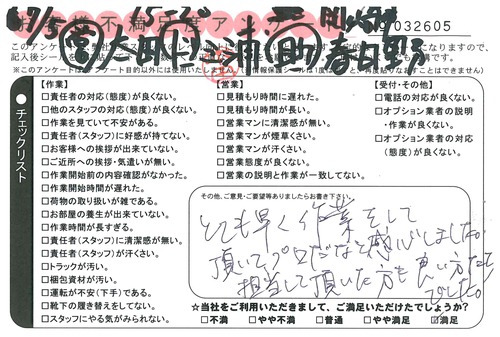 お客様不満足度ア
№032605
このアンケートは、弊社
記入後シールを
(※このアンケートはアンケート目的以外には使用いたしません。
●チェックリスト
【作業】
□責任者の対応(態度)が良くない。
□他のスタッフの対応(態度)が良くない。
□作業を見ていて不安がある。
□責任者(スタッフ)に好感が持てない。
□お客様への挨拶が出来ていない。
□ご近所への挨拶・気遣いが無い。
□作業開始前の内容確認がなかった。
□作業開始時間が遅れた。
□荷物の取り扱いが雑である。
□お部屋の養生が出来ていない。
□作業時間が長すぎる。
□責任者(スタッフ)に清潔感が無い。
□責任者(スタッフ)が汗くさい。
□トラックが汚い。
□梱包資材が汚い。
□運転が不安(下手)である。
□靴下の履き替えをしてない。
□スタッフにやる気がみられない。
【営業】
□見積もり時間に遅れた。
□見積もり時間が長い。
□営業マンに清潔感が無い。
□営業マンが煙草くさい。
□営業マンが汗くさい。
□営業態度が良くない。
□営業の説明と作業が一致してない。
【受付・その他】
□電話の対応が良くない。
□オプション業者の説明
・作業が良くない。
□オプション業者の対応
(態度)が良くない。
その他、ご意見・ご要望等ありましたらお書き下さい。
とても早く作業をして
頂いてプロだなと感心しました。
担当して頂いた方も良い方たち
でした。
☆当社をご利用いただきまして、ご満足いただけたでしょうか?
□不満 □やや不満 □普通 □やや満足 ☑満足